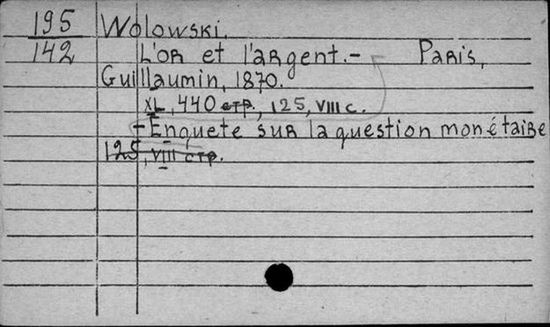 195 Wolowski.
142 L'or et l'argent.- Paris,
Guillaumin, 1870.
XL, 440 стр., 125, VIII с.
+Enquete sur la question monétaire
125, VIII стр.